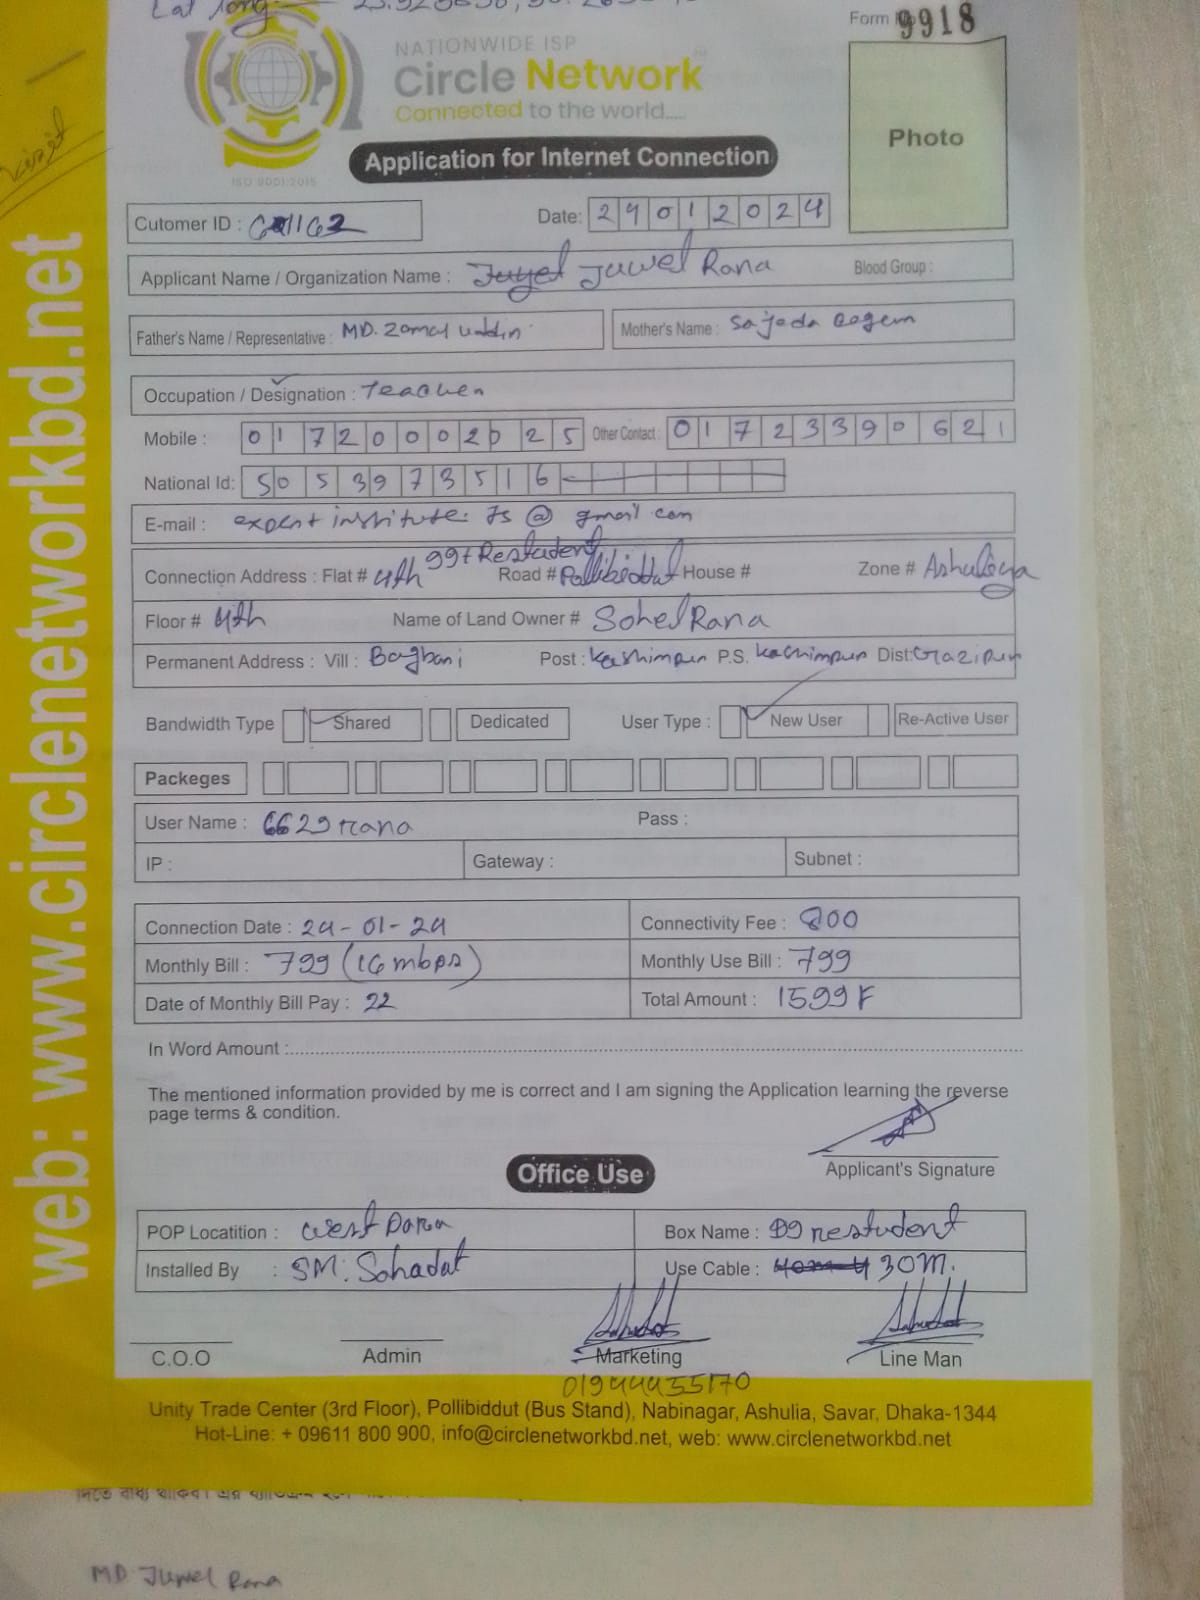 Lat long
Form No 9918
NATIONWIDE ISP
Circle Network
Connected to the world.....
ISO 9001:2015
Photo
Application for Internet Connection
visit
Cutomer ID :
Date: 24012024
Applicant Name / Organization Name : Juwel Rana Blood Group :
Father's Name / Representative : MD. Zamal Uddin Mother's Name : Sajeda Begem
Occupation / Designation : Teacher
Mobile : 01720002025 Other Contact : 01723390621
National Id: 5053973516
E-mail : expert institute. Js @ gmail com
99+ Restudent
Connection Address : Flat # 4th Road # Pollibiddut House # Zone # Ashuliya
Floor # 4th Name of Land Owner # Sohel Rana
Permanent Address : Vill : Bagbari Post : Kashimpur P.S. Kachimpur Dist: Gazipur
Bandwidth Type Shared Dedicated User Type : New User Re-Active User
Packeges
User Name : 6629 rana Pass :
IP : Gateway : Subnet :
Connection Date : 24-01-24 Connectivity Fee : 800
Monthly Bill : 799 (16 mbps) Monthly Use Bill : 799
Date of Monthly Bill Pay : 22 Total Amount : 1599
In Word Amount :
The mentioned information provided by me is correct and I am signing the Application learning the reverse
page terms & condition.
Applicant's Signature
Office Use
POP Locatition : West Para Box Name : 99 restudent
Installed By : SM. Sohadat Use Cable : 30M.
C.O.O Admin Marketing Line Man
Unity Trade Center (3rd Floor), Pollibiddut (Bus Stand), Nabinagar, Ashulia, Savar, Dhaka-1344
Hot-Line: + 09611 800 900, info@circlenetworkbd.net, web: www.circlenetworkbd.net
web: www.circlenetworkbd.net
MD Juwel Rana